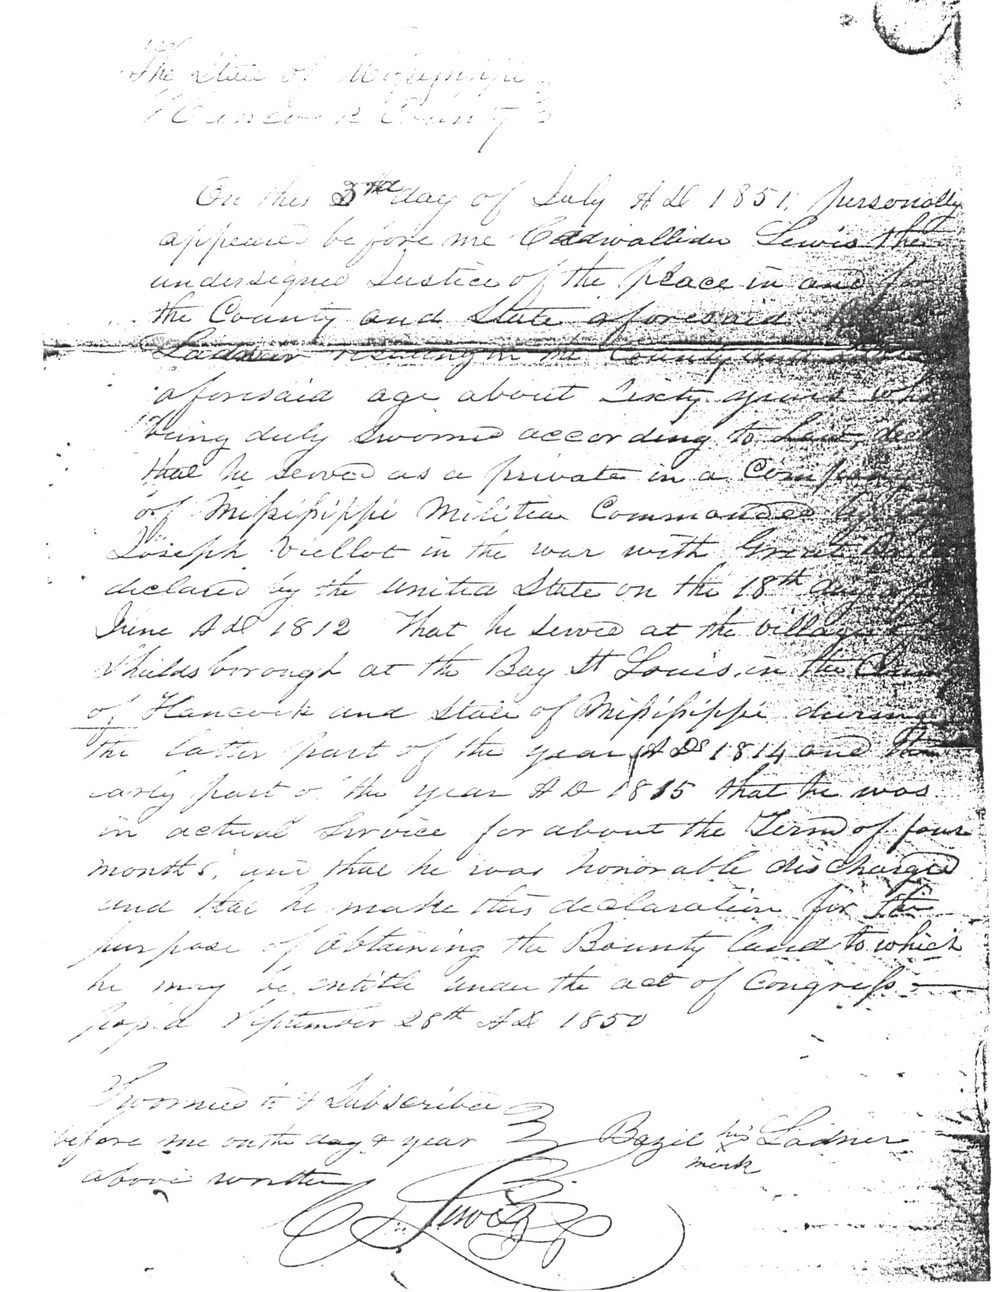 The State of Missisippi
Hancock County
On this 3rd day of July AD 1851, personally
appeared before me Cadwallider Lewis the
undersigned Justice of the place in and for
the County and State aforesaid
Ladner residing in the County and State
aforesaid age about Sixty years who
being duly sworned according to Law,
that he served as a private in a Company
of Missisippi Militia Commanded by
Joseph Vellot in the war with Great
declared by the united State on the 18th day of
June AD 1812 That he served at the village of
Shieldsborough at the Bay St Louis, in the
of Hancock and State of Missisippi during
the latter part of the year AD 1814 and the
early part of the year AD 1815 that he was
in actual Service for about the Term of four
months, and that he was honorable discharged
and that he make this declaration for the
purpose of obtaining the Bounty land to which
he may be entitle under the act of Congress
September 28th AD 1850
Swornned to & Subscribed
before me on the day & year
above written
Bazil his Ladner
mark
C. Lewis